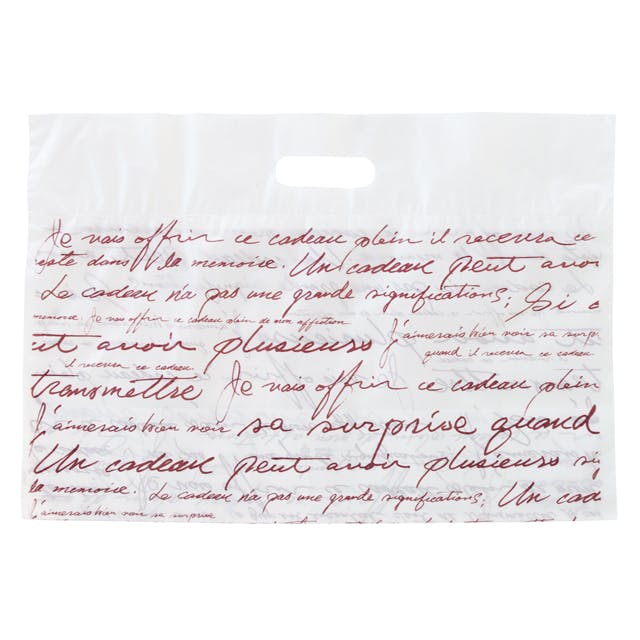 Je vais offrir ce cadeau plein il recevra ce
reste dans la memoire. Un cadeau peut avoi
Le cadeau n'a pas une grande significations; Si c
memoire. Je vais offrir ce cadeau plein de mon affection
ut avoir plusieurs J'aimerais bien voir sa surpr
quand il recevra ce cadeau.
il recevra ce cadeau.
transmettre Je vais offrir ce cadeau plein
J'aimerais bien voir sa surprise quand
Un cadeau peut avoir plusieurs si
la memoire. Le cadeau n'a pas une grande significations; Un cad
J'aimerais bien voir sa surprise